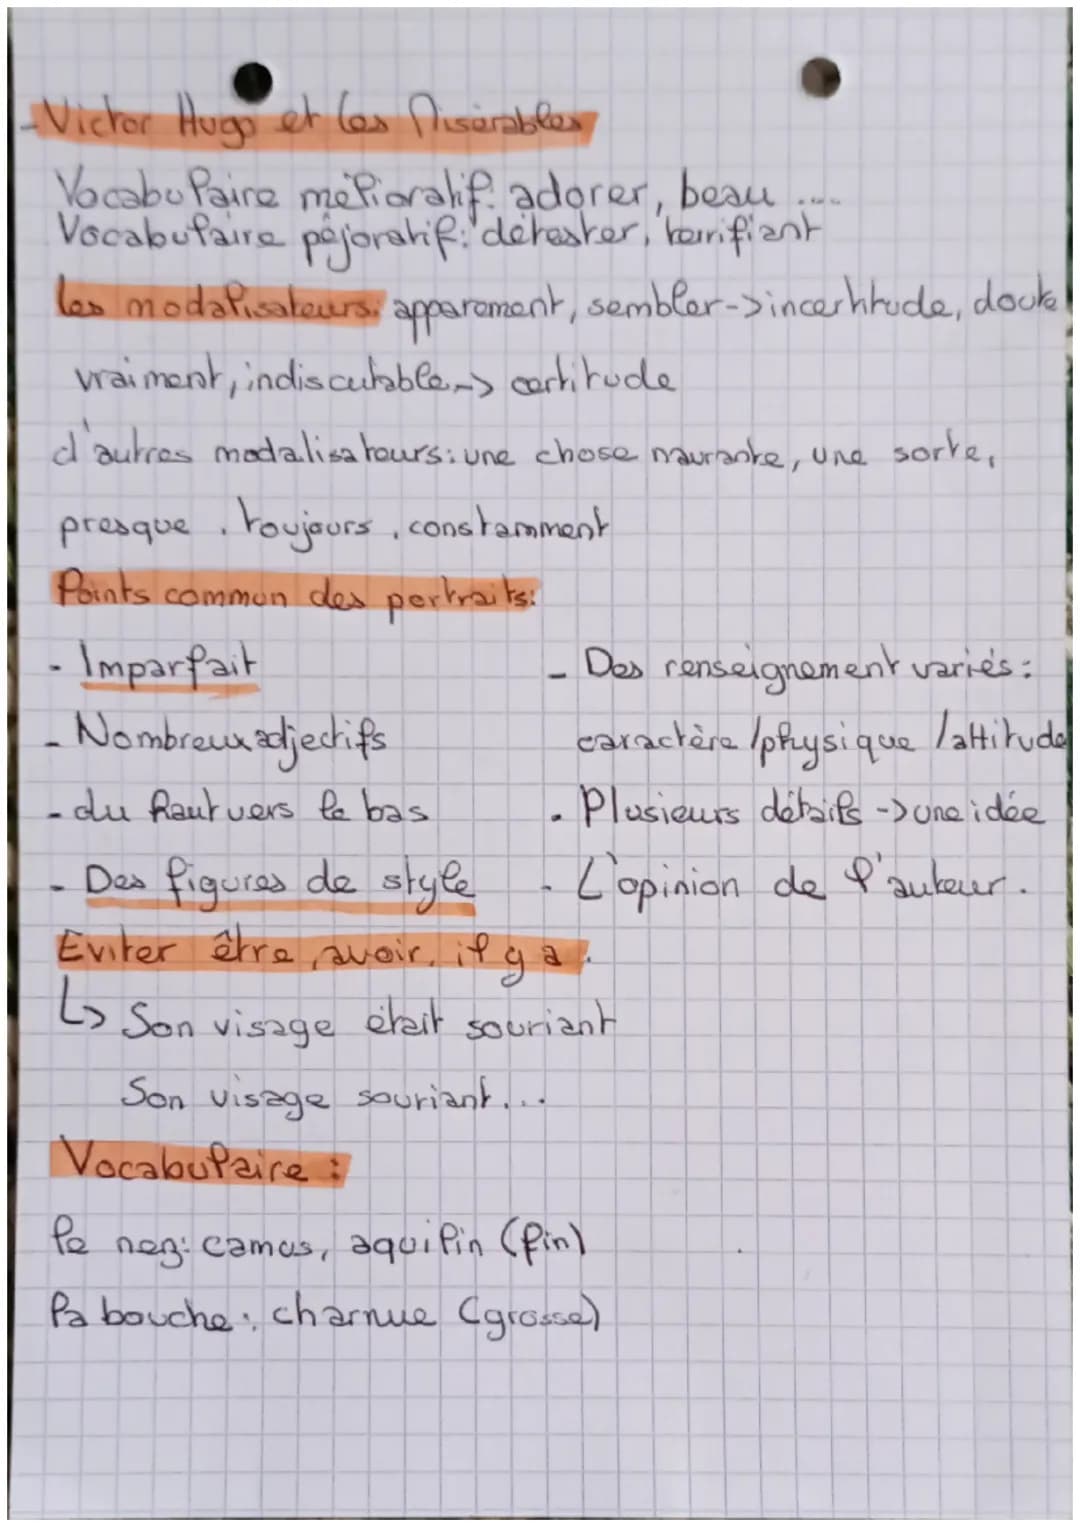 - Victor Hugo et les Misérables
Vocabulaire mélioratif: adorer, beau ....
Vocabulaire péjoratif: détester, terrifiant
les modalisateurs: apparement, sembler -> incertitude, doute
vraiment, indiscutable -> certitude
d'autres modalisateurs: une chose navrante, une sorte,
presque, toujours, constamment
Points commun des portraits:
- Imparfait
- Nombreux adjectifs
- du haut vers le bas
- Des figures de style
- Des renseignement variés:
caractère / physique / attitude
- Plusieurs détails -> une idée
- L'opinion de l'auteur.
Eviter être, avoir, il y a.
↳ Son visage était souriant
Son visage souriant...
Vocabulaire:
le nez: camus, aquilin (fin)
la bouche: charnue (grosse)